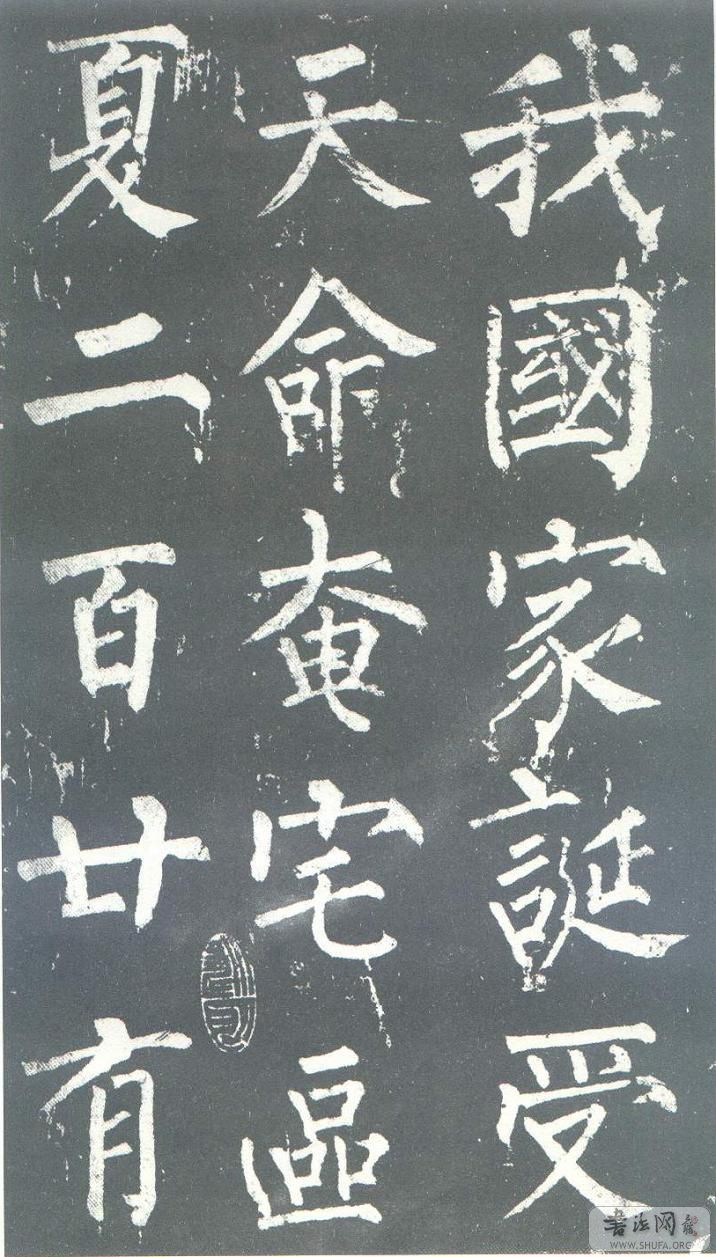 我國家誕受
天命奄宅區
夏二百廿有
書法网
WWW.SHUFA.ORG